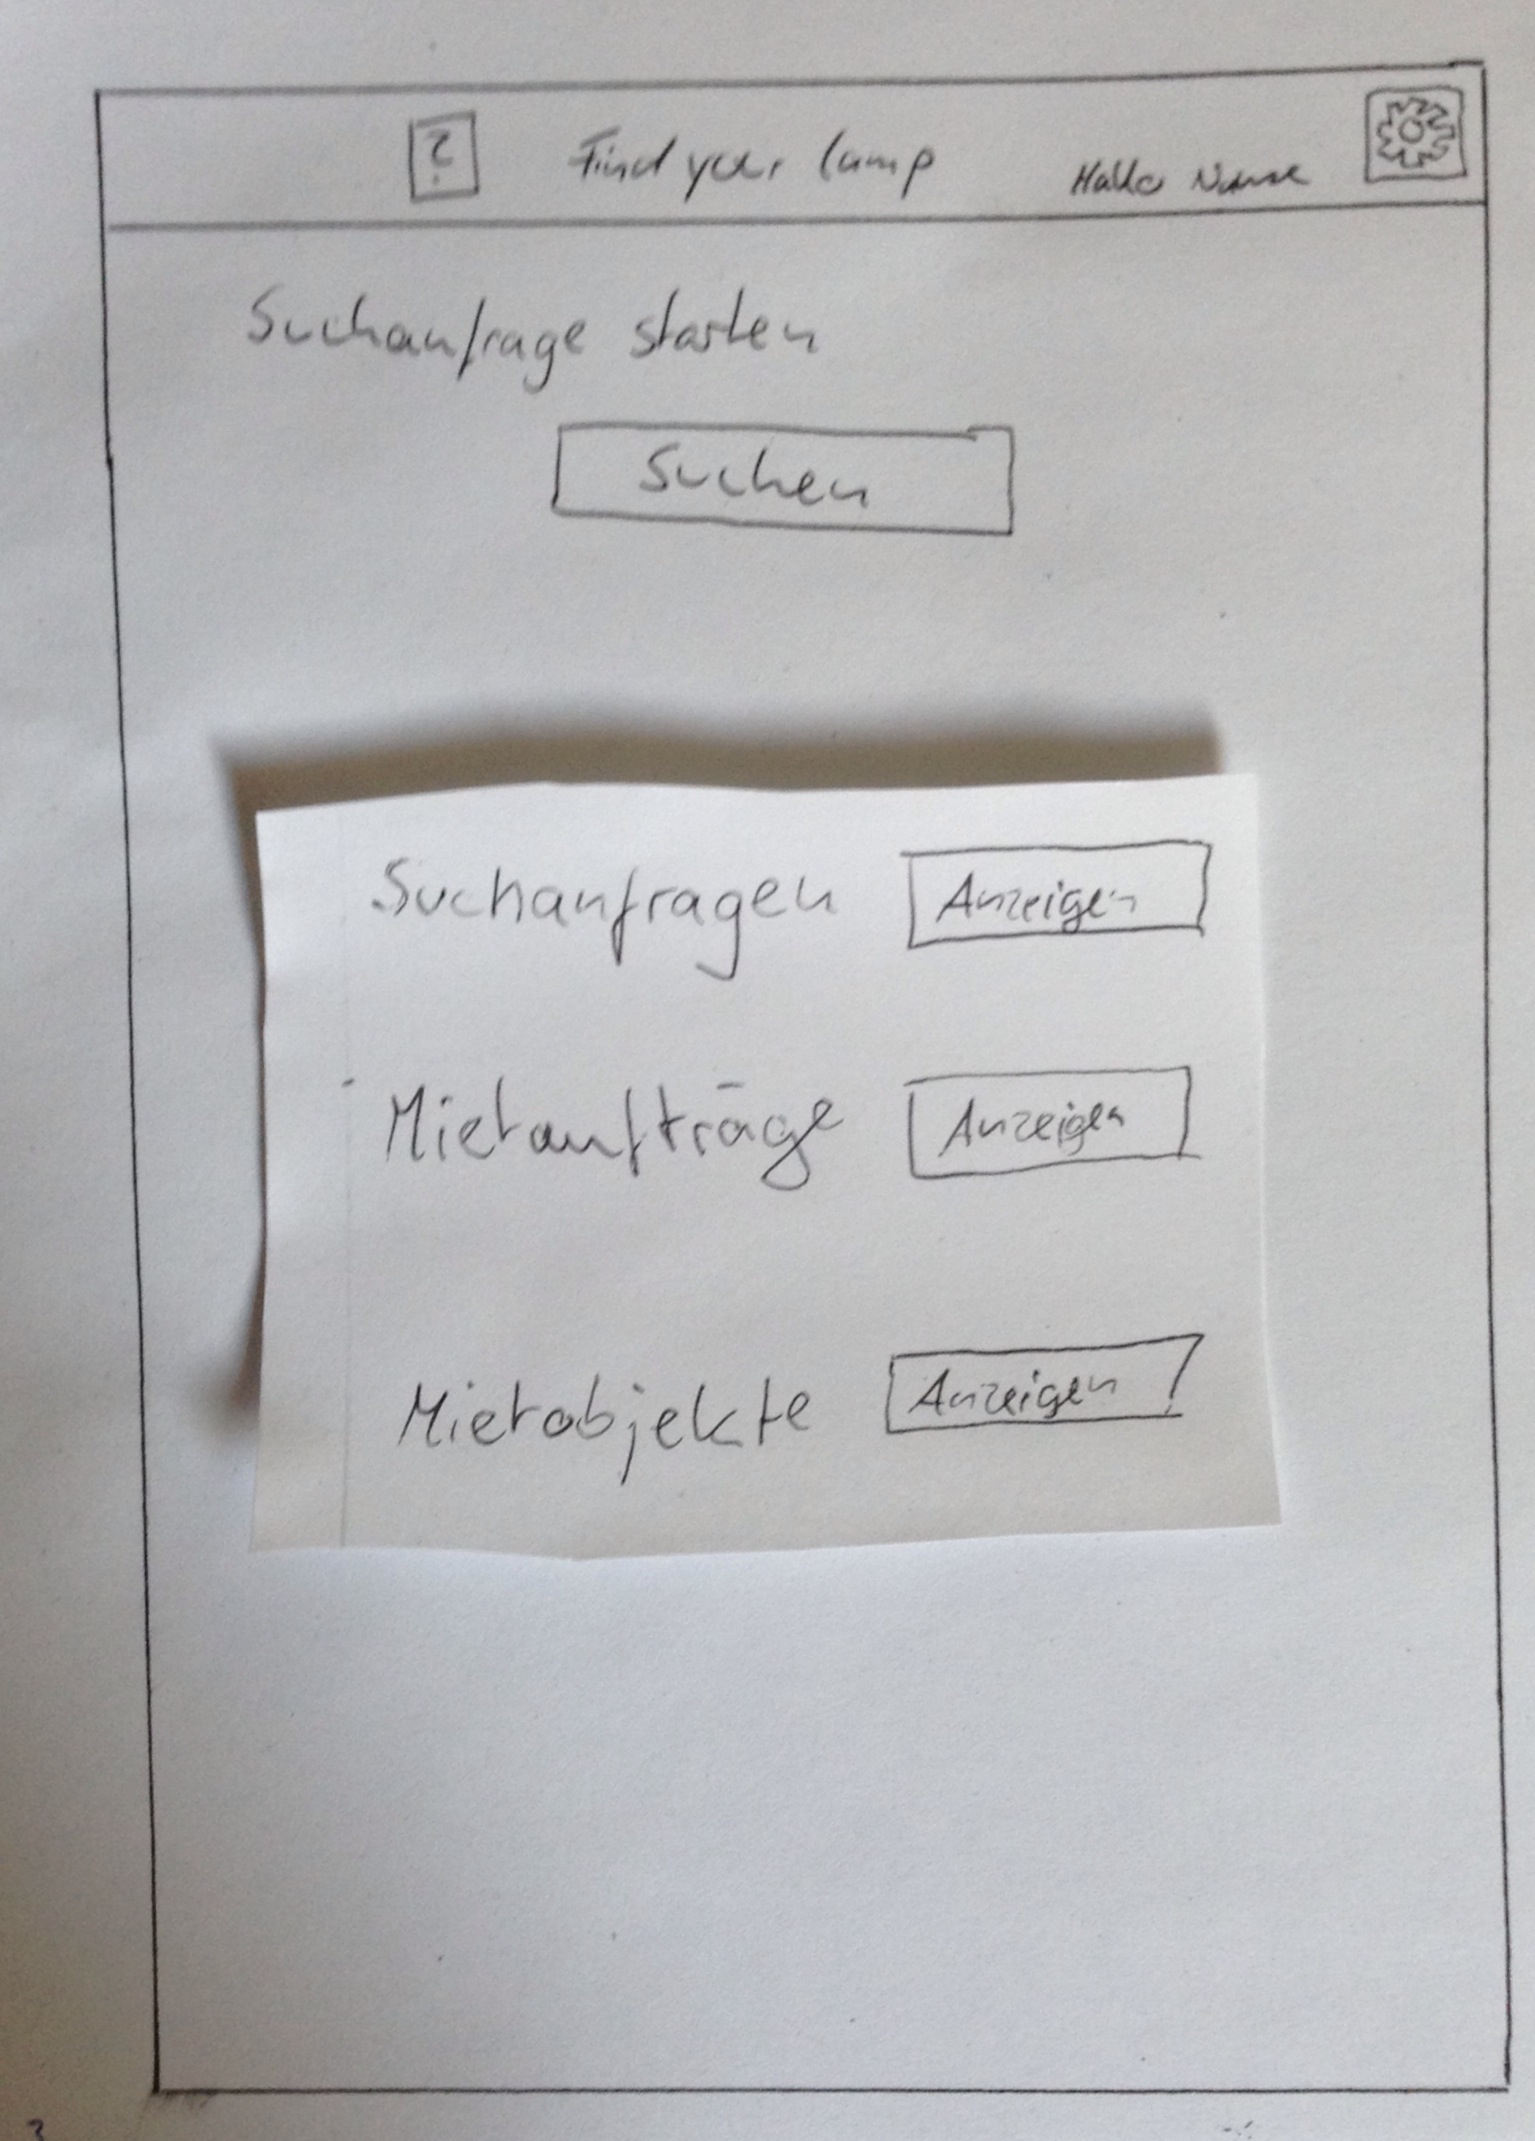 ? Find your lamp Hallo Name
Suchanfrage starten
Suchen
Suchanfragen Anzeigen
Mietaufträge Anzeigen
Mietobjekte Anzeigen
3